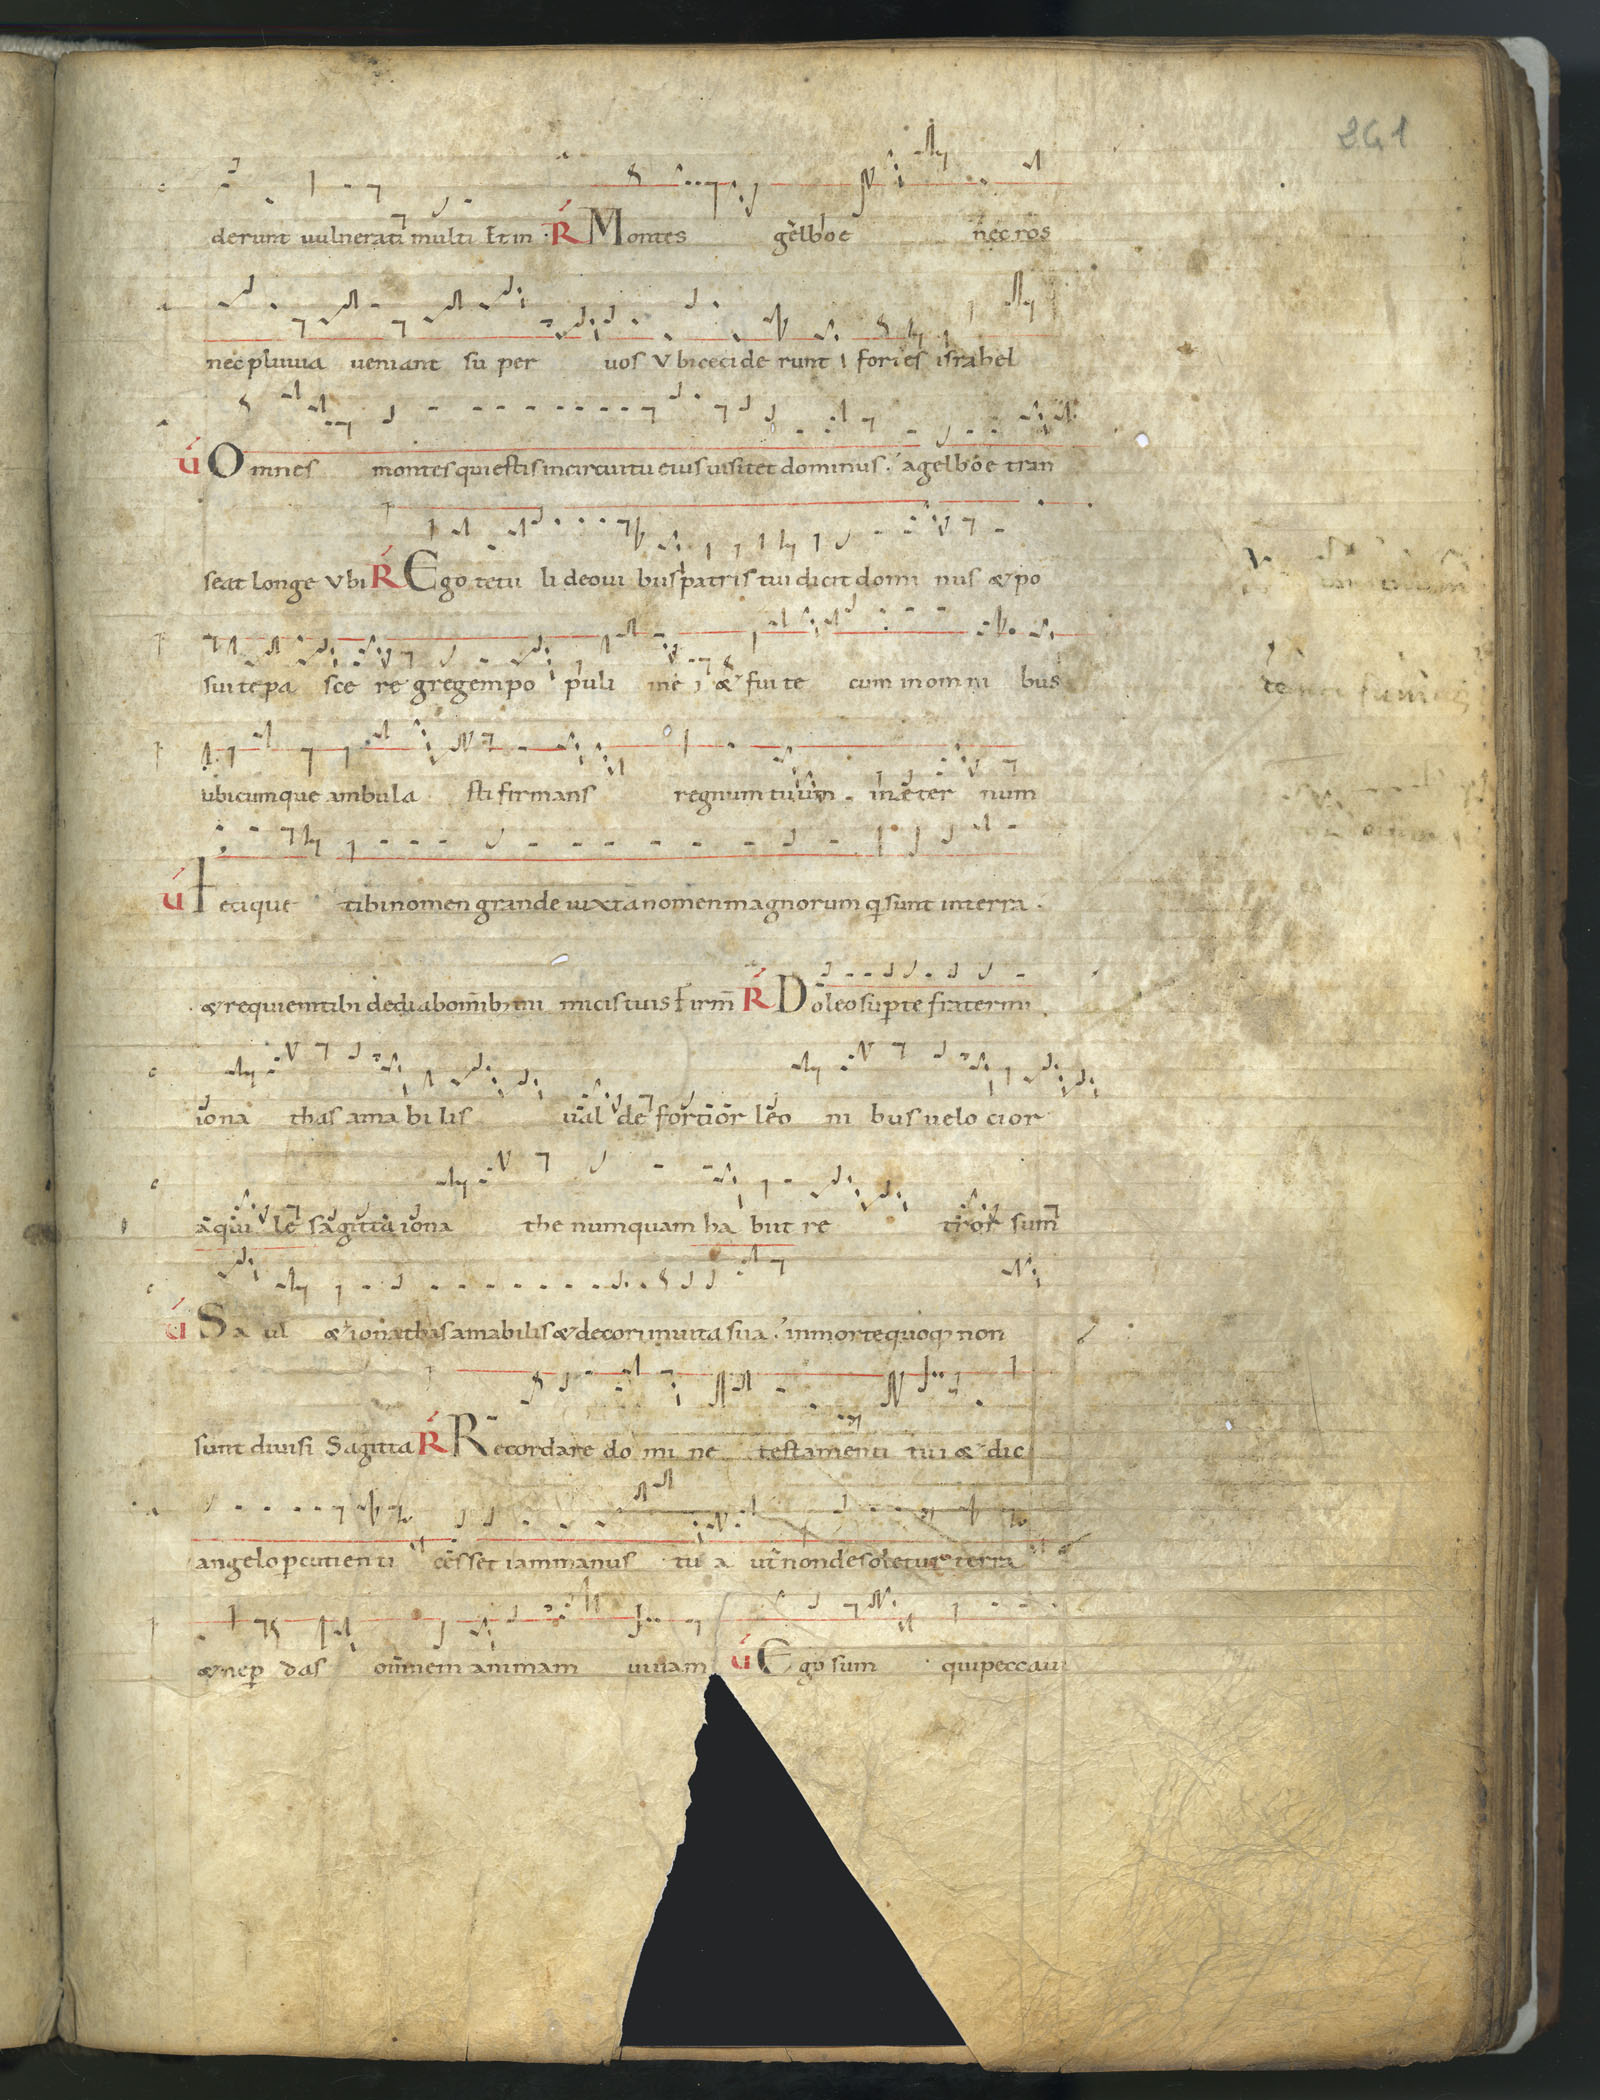 241
derunt uulnerati multi Et in · R Montes gelboe nec ros
nec pluuia ueniant su per uos Vbi cecide runt fortes israhel
V Omnes montes qui estis in circuitu eius uisitet dominus · a gelboe tran
seat longe Vbi R Ego te tu li de oui bus patris tui dicit domi nus & po
sui te pa sce re gregem po puli me i & fui te cum in omni bus
ubicumque ambula sti firmans regnum tuum . in eter num
V Feci que tibi nomen grande iuxta nomen magnorum q sunt in terra .
& requiem tibi dedi ab omīb; ini micis tuis Firm̄ R Doleo sup te frater mi
iona thas ama bi lis ual de fortior leo ni bus uelo cior
aqui le sagitta iona the numquam ha buit re tror sum
V Sa ul & ionathas amabilis & decori in uita sua · in morte quoq; non
sunt diuisi Sagitta R Recordare do mi ne testamenti tui & dic
angelo pcutien ti cesset iam manus tu a ut non desoletur terra
& ne p das omnem animam uiuam V Ego sum qui peccaui